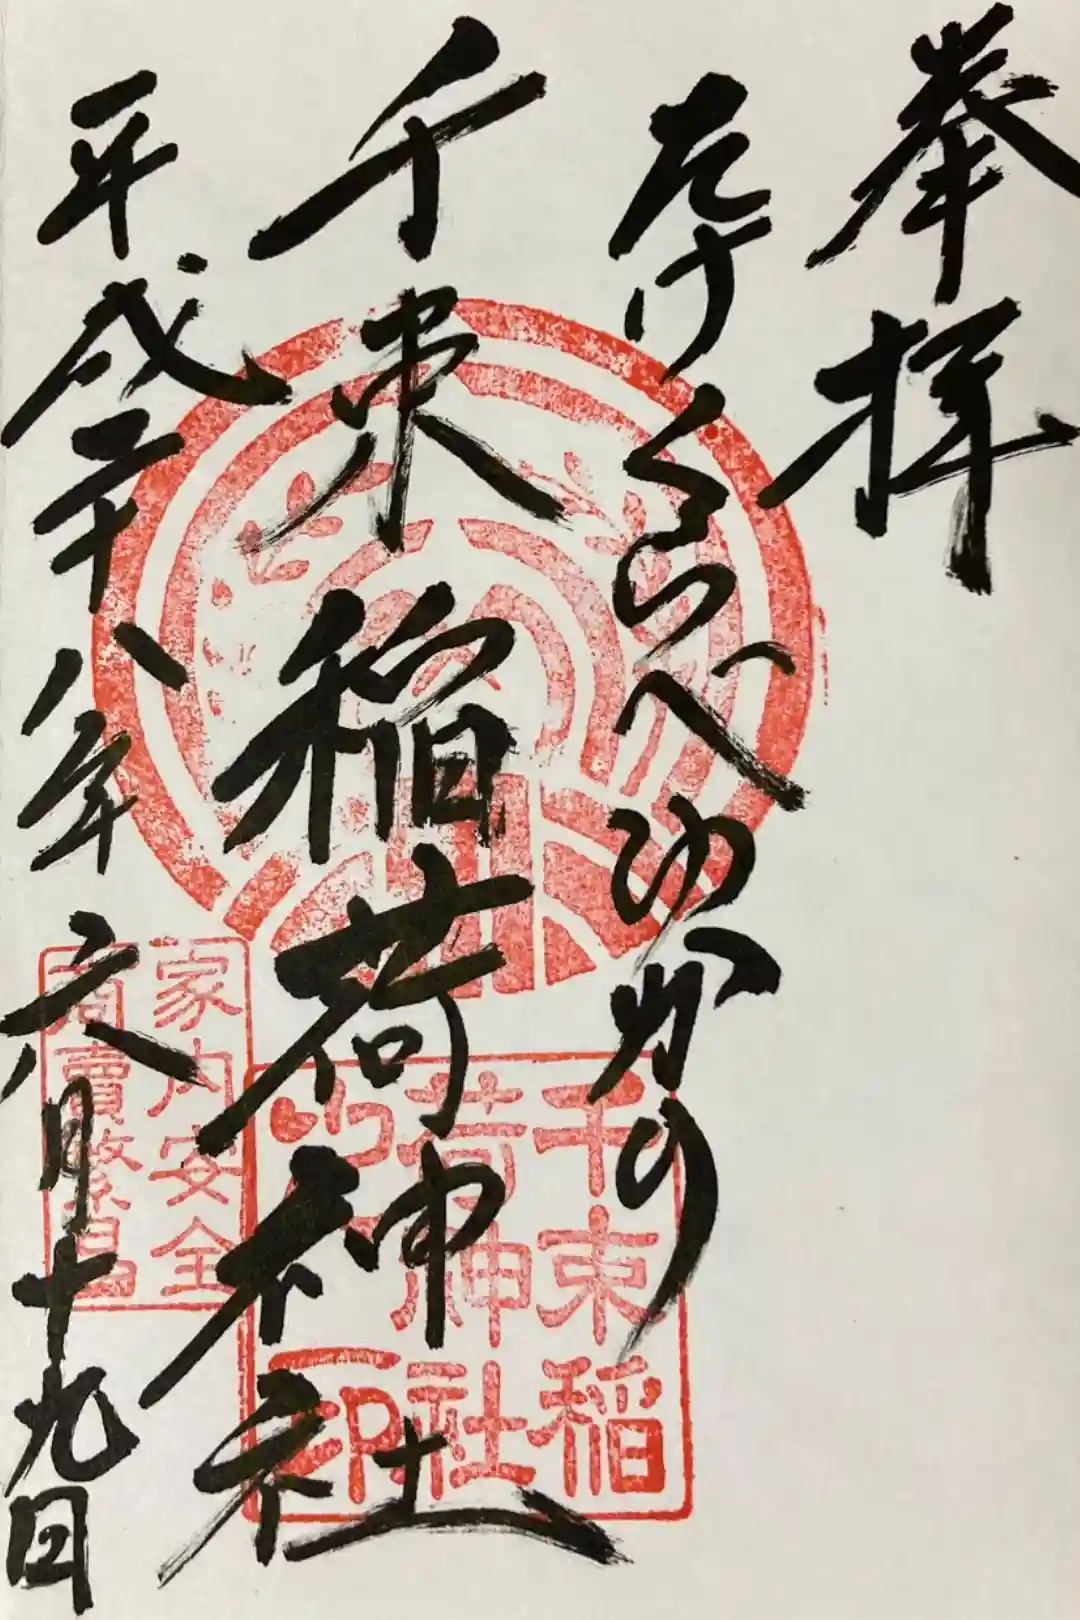 奉拝
たけくらべゆかりの
千束稲荷神社
平成二十八年六月十九日
千束稲
荷神社
印
家内安全
商賣繁昌